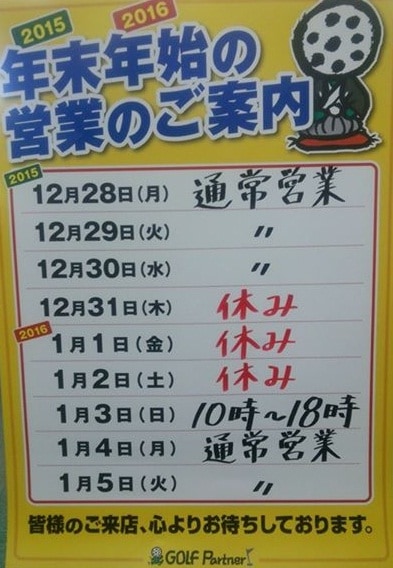 2015 2016
年末年始の
営業のご案内
2015
12月28日(月) 通常営業
12月29日(火) 〃
12月30日(水) 〃
12月31日(木) 休み
2016
1月1日(金) 休み
1月2日(土) 休み
1月3日(日) 10時~18時
1月4日(月) 通常営業
1月5日(火) 〃
皆様のご来店、心よりお待ちしております。
GOLF Partner